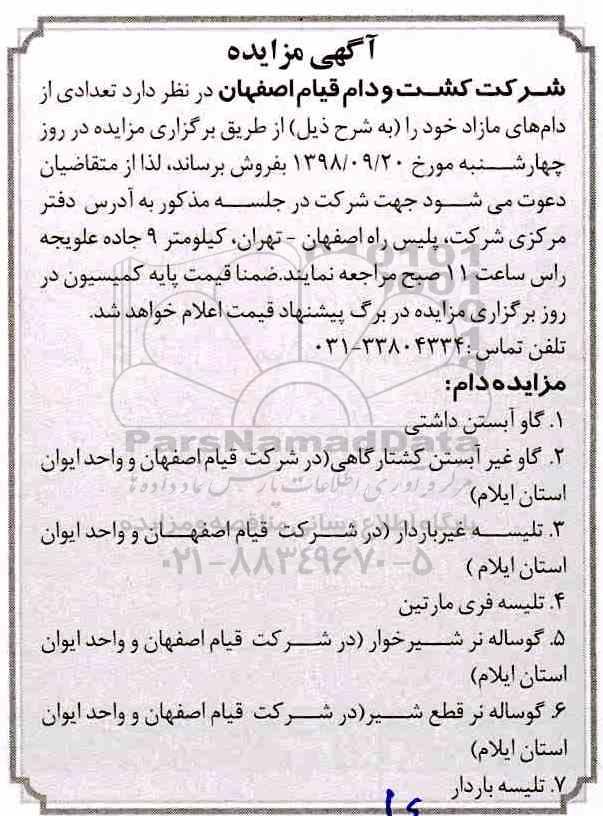 آگهی مزایده
شرکت کشت و دام قیام اصفهان در نظر دارد تعدادی از
دام‌های مازاد خود را (به شرح ذیل) از طریق برگزاری مزایده در روز
چهارشنبه مورخ ۱۳۹۸/۰۹/۲۰ بفروش برساند، لذا از متقاضیان
دعوت می شود جهت شرکت در جلسه مذکور به آدرس دفتر
مرکزی شرکت، پلیس راه اصفهان - تهران، کیلومتر ۹ جاده علویجه
راس ساعت ۱۱ صبح مراجعه نمایند.ضمنا قیمت پایه کمیسیون در
روز برگزاری مزایده در برگ پیشنهاد قیمت اعلام خواهد شد.
تلفن تماس:۳۳۸۰۴۳۳۴-۰۳۱
مزایده دام:
۱. گاو آبستن داشتی
ParsNamadData
۲. گاو غیر آبستن کشتارگاهی(در شرکت قیام اصفهان و واحد ایوان
استان ایلام)
۳. تلیسه غیرباردار (در شرکت قیام اصفهان و واحد ایوان
استان ایلام )
۰۲۱-۸۸۳۴۹۶۷۰-۵
۴. تلیسه فری مارتین
۵. گوساله نر شیرخوار (در شرکت قیام اصفهان و واحد ایوان
استان ایلام)
۶. گوساله نر قطع شیر(در شرکت قیام اصفهان و واحد ایوان
استان ایلام)
۷. تلیسه باردار